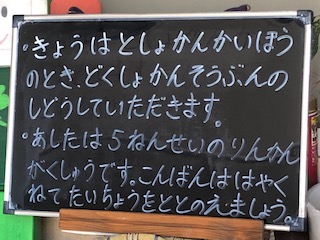 ・きょうはとしょかんかいほう
のとき、どくしょかんそうぶんの
しどうしていただきます。
・あしたは5ねんせいのりんかん
がくしゅうです。こんばんははやく
ねてたいちょうをととのえましょう。